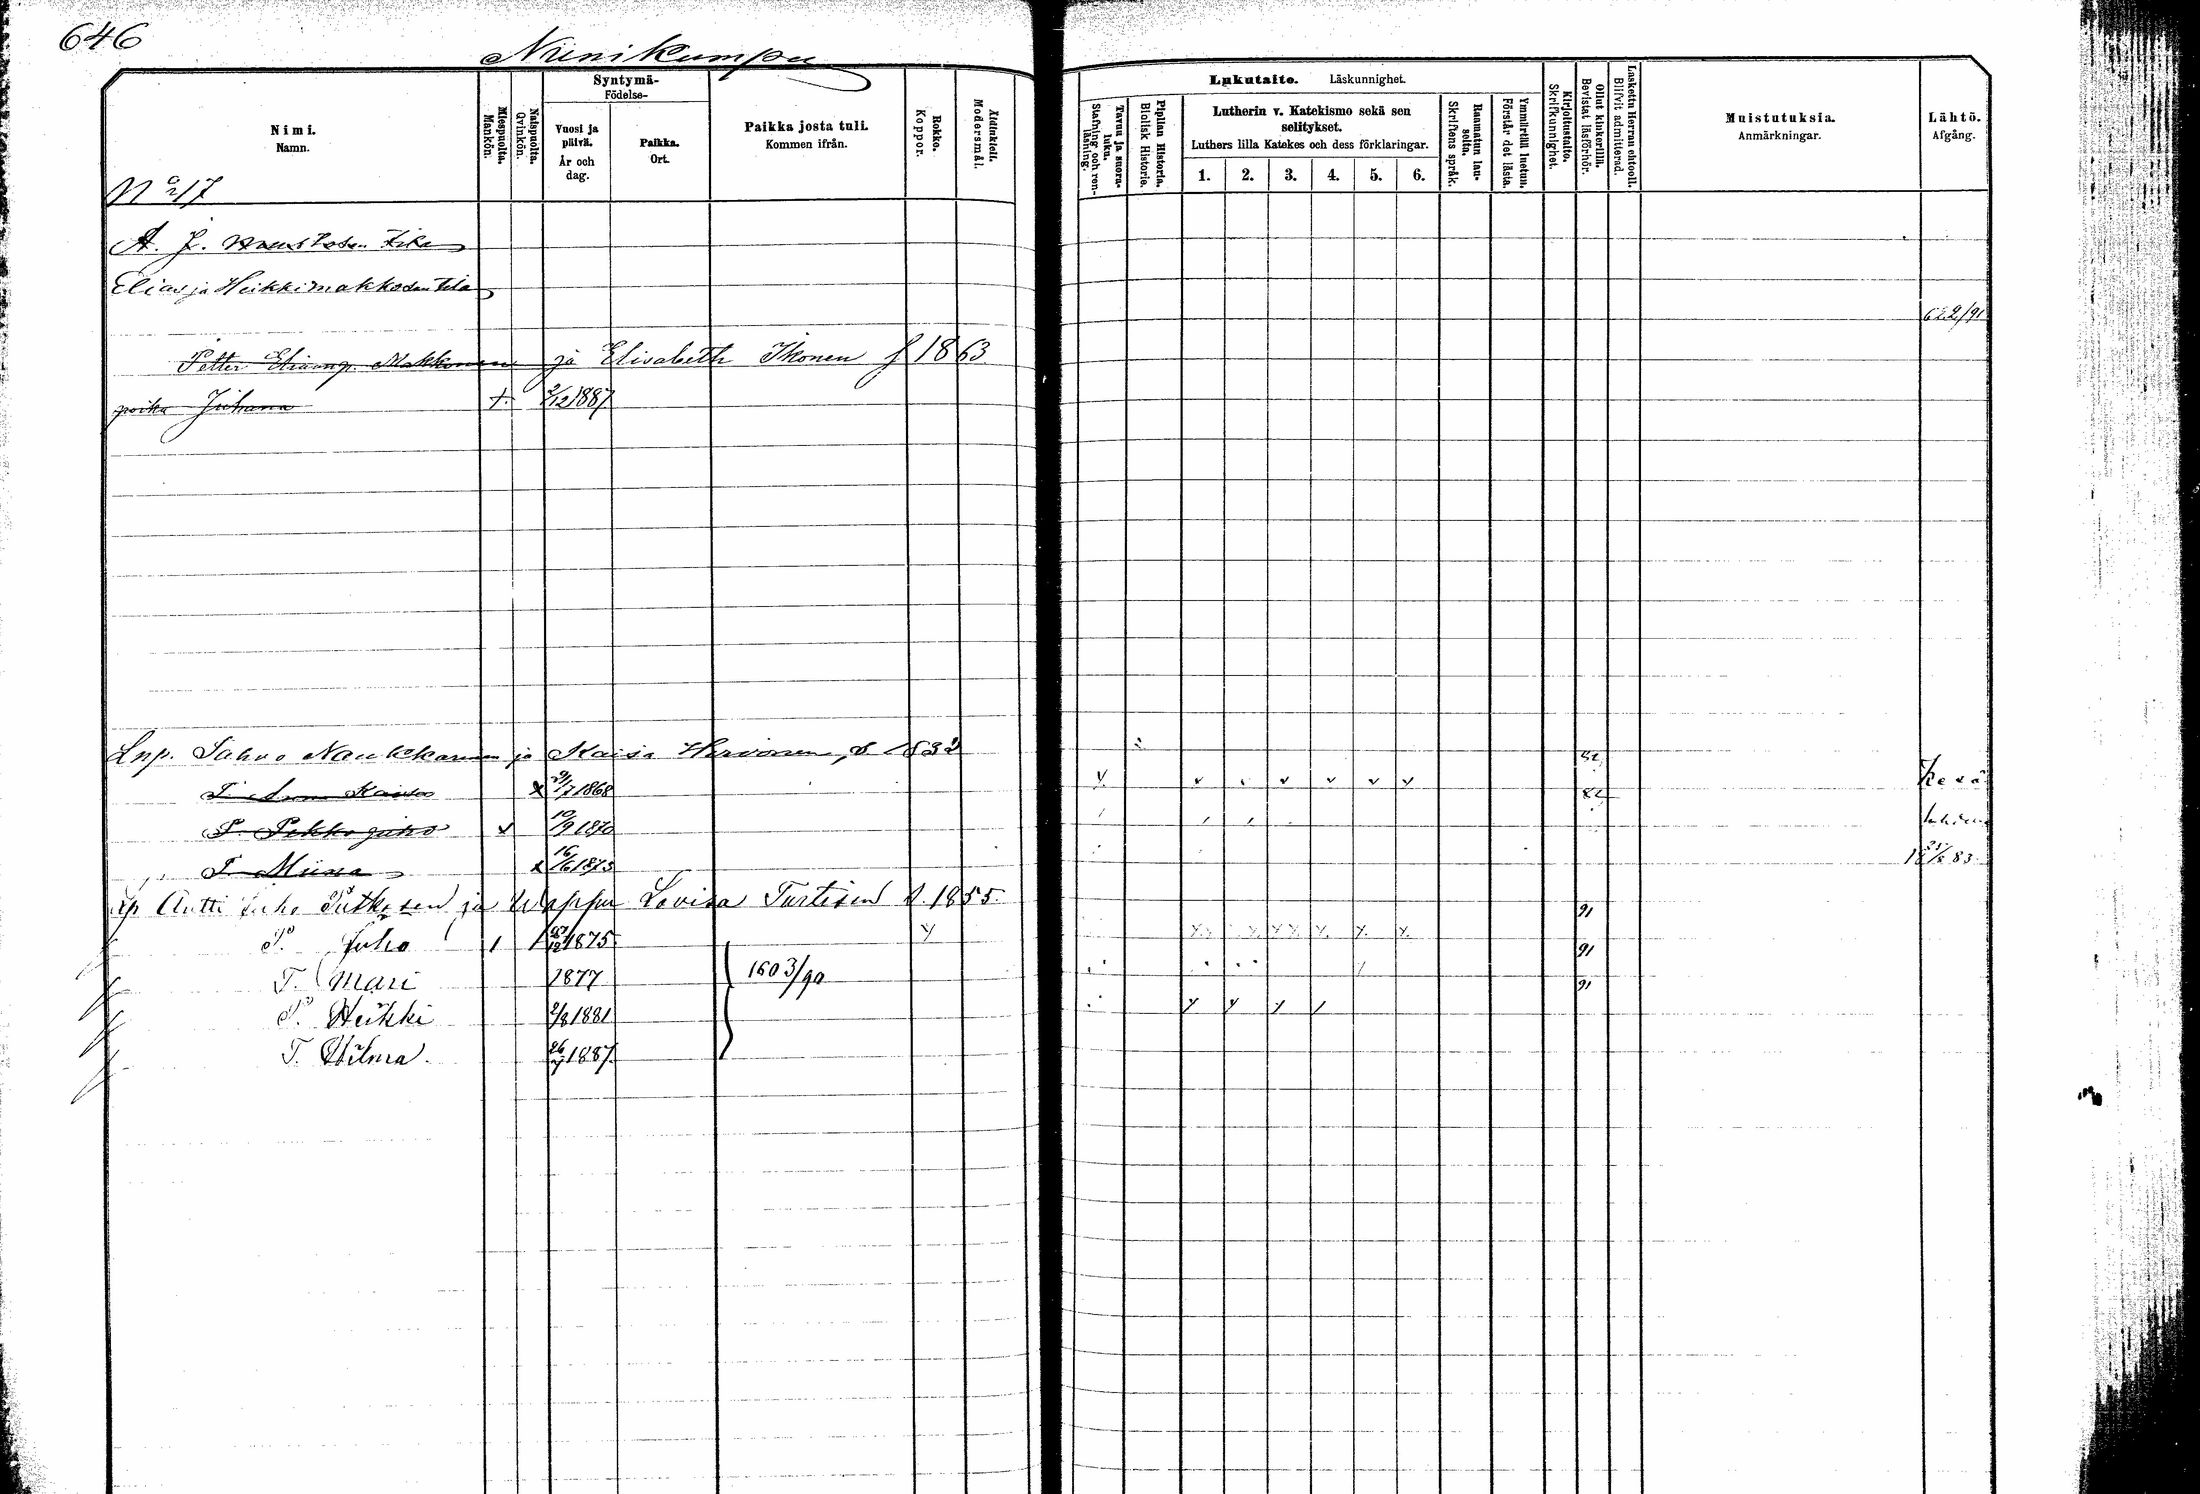 646
Niinikumpu
Nimi.
Namn.
Miespuolta.
Mankön.
Naispuolta.
Qvinkön.
Syntymä-
Födelse-
Vuosi ja
päivä.
År och
dag.
Paikka.
Ort.
Paikka josta tuli.
Kommen ifrån.
Rokko.
Koppor.
Äidinkieli.
Modersmål.
Lukutaito. Läskunnighet.
Tavuu ja suora-
luku.
Stafning och ren-
läsning.
Piplian Historia.
Biblisk Historie.
Lutherin v. Katekismo sekä sen
selitykset.
Luthers lilla Katekes och dess förklaringar.
1. 2. 3. 4. 5. 6.
Raamatun lau-
soita.
Skriftens språk.
Ymmärtää luetun.
Förstår det lästa.
Kirjoitustaito.
Skrifkunnighet.
Ollut kinkerillä.
Bevistat läsförhör.
Laskettu Herran ehtooll.
Blifvit admitterad.
Muistutuksia.
Anmärkningar.
Lähtö.
Afgång.
No 17
A. J. tila
Elias ja Heikki Makkosen tila
622/91
Petter Eliaanp. Makkonen ja Elisabeth Ikonen f 1863
poika Juhana + 2/12 1887
Lnp. Sahvo Naukkarinen ja Kaisa Hirvonen, s. 1832 82
T. Kaisa x 1868 v v v v v v 82
P. Pekka Juho v 10/9 1870
T. Miina x 16/6 1873 83
Antti Juho Putkosen ja Wappu Lovisa Turtisen s. 1855 91
P. Juho 1 12 1875 91
T. Mari 1877 1603/90 91
P. Heikki 2/8 1881
T. Hilma 26 1887